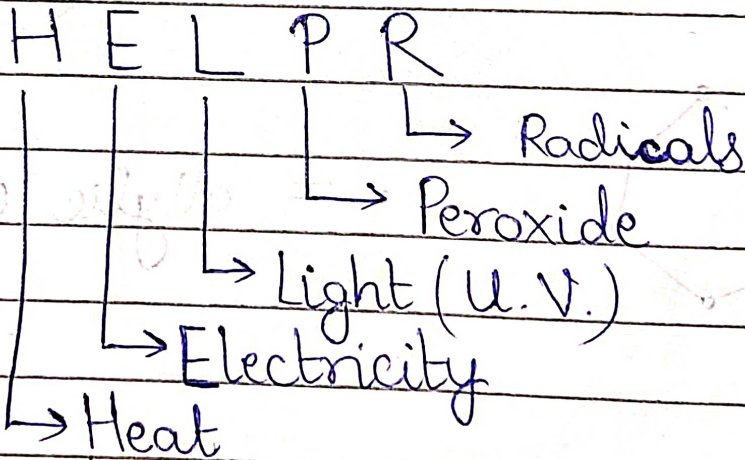 H E L P R
Radicals
Peroxide
Light (U.V.)
Electricity
Heat